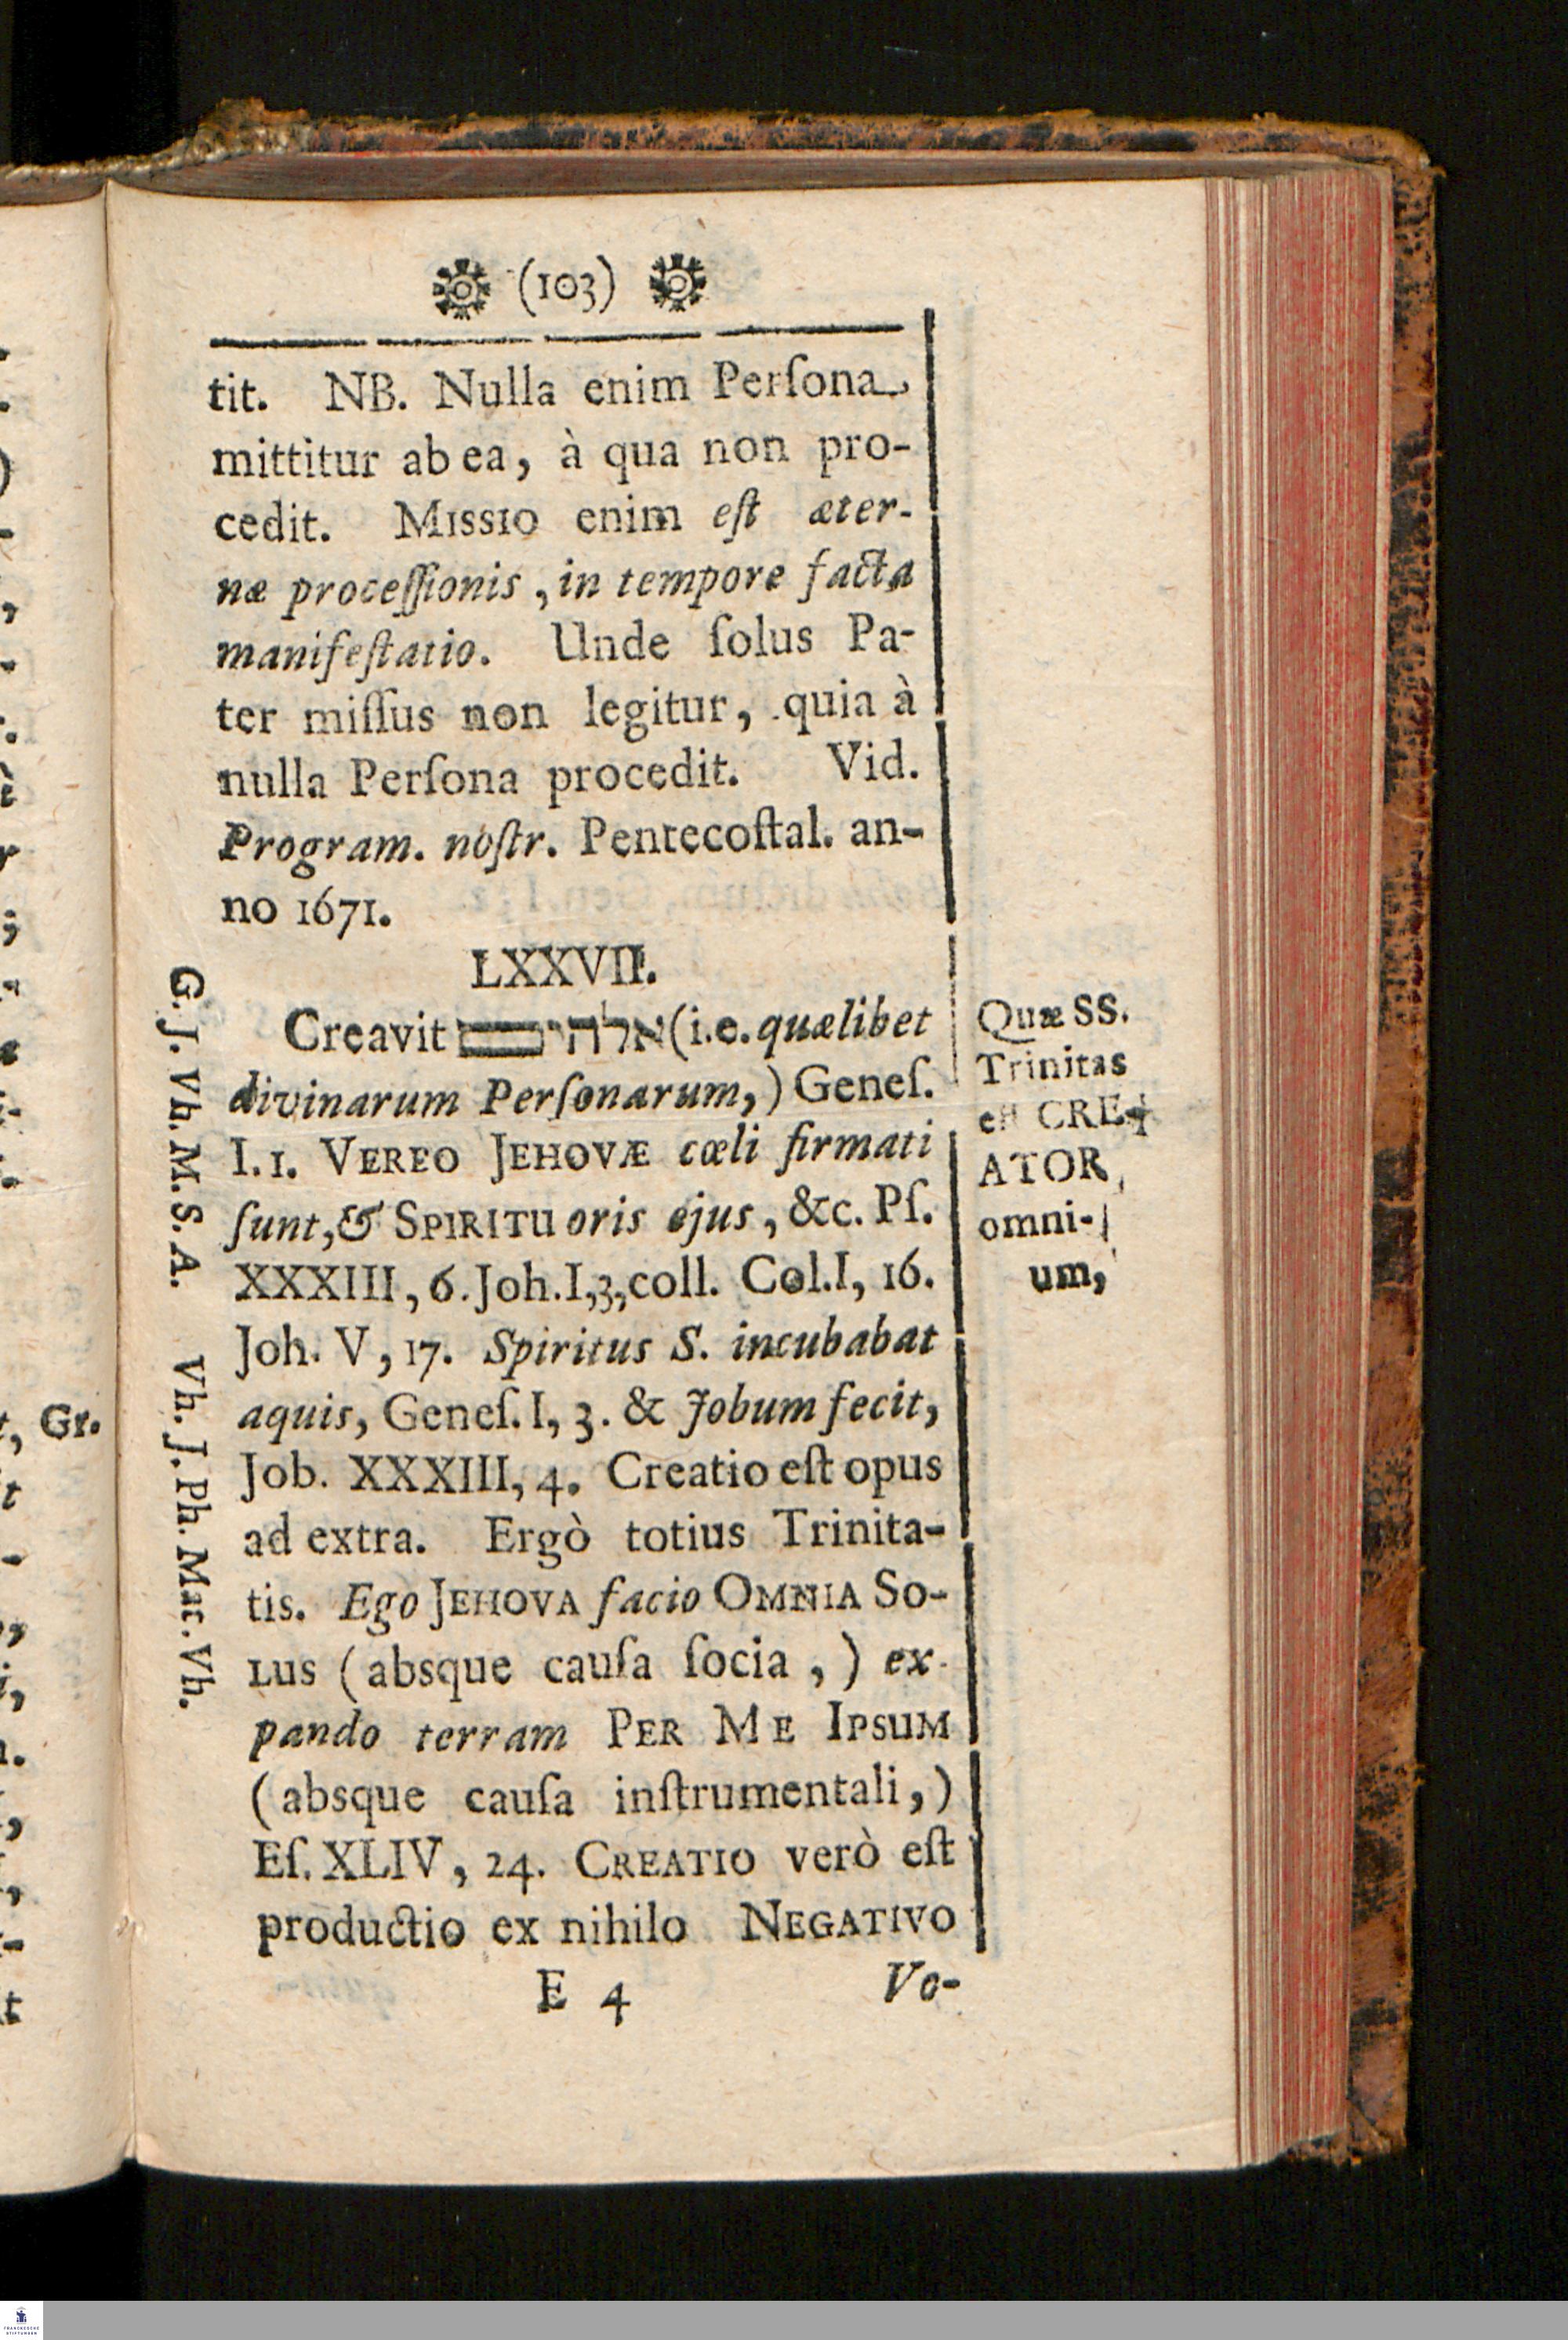 (103)
tit. NB. Nulla enim Perſona
mittitur ab ea, à qua non pro-
cedit. MISSIO enim eſt æter-
næ proceſſionis, in tempore facta
manifeſtatio. Unde ſolus Pa-
ter miſſus non legitur, quia à
nulla Perſona procedit. Vid.
Program. noſtr. Pentecoſtal. an-
no 1671.
LXXVII.
Creavit אלהי (i.e. quælibet
divinarum Perſonarum,) Geneſ.
I. 1. VEREO JEHOVÆ cœli firmati
ſunt, & SPIRITU oris ejus, &c. Pſ.
XXXIII, 6. Joh. I, 3, coll. Col. I, 16.
Joh. V, 17. Spiritus S. incubabat
aquis, Geneſ. I, 3. & Jobum fecit,
Job. XXXIII, 4. Creatio eſt opus
ad extra. Ergò totius Trinita-
tis. Ego JEHOVA facio OMNIA SO-
LUS (absque cauſa ſocia,) ex-
pando terram PER ME IPSUM
(absque cauſa inſtrumentali,)
Eſ. XLIV, 24. CREATIO verò eſt
productio ex nihilo NEGATIVO
E 4 Vo-
Quæ SS.
Trinitas
eſt CRE-
ATOR
omni-
um,
G. J. Vh. M. S. A. Vh. J. Ph. Mat. Vh.
Gr.
FRANCKESCHE
STIFTUNGEN